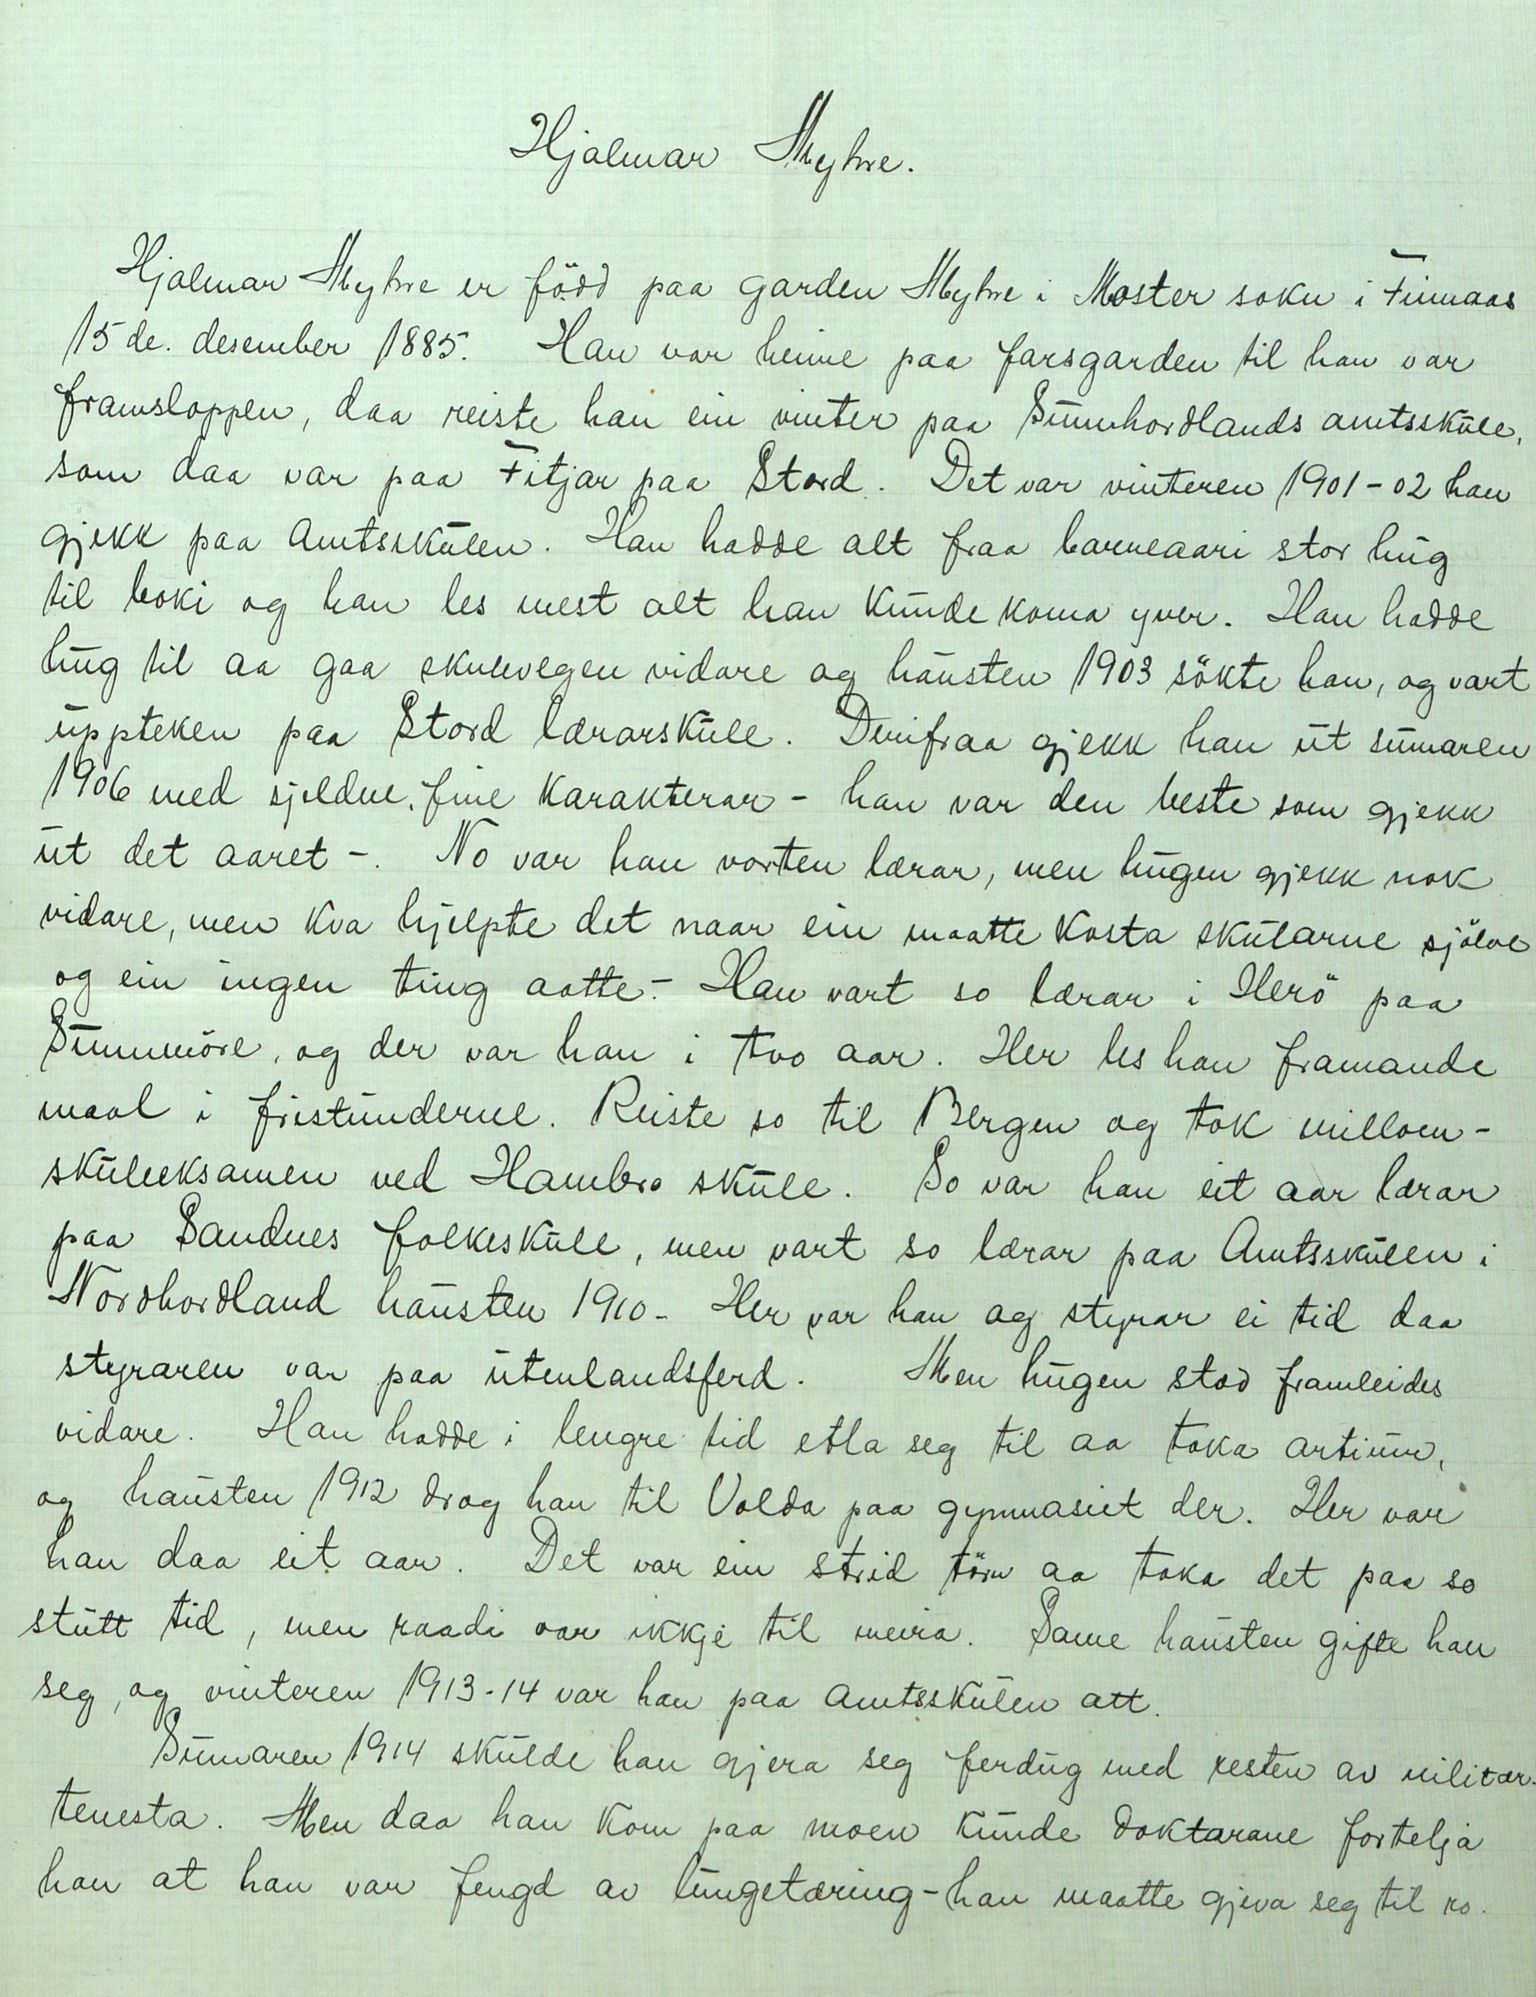 Hjalmar Myhre.
Hjalmar Myhre er född paa garden Myhre i Moster sokn i Finnaas
15de. desember 1885. Han var heime paa farsgarden til han var
framsloppen, daa reiste han ein vinter paa Sunnhordlands amtsskule,
som daa var paa Fitjar paa Stord. Det var vinteren 1901-02 han
gjekk paa Amtsskulen. Han hadde alt fraa barneaari stor hug
til boki og han les mest alt han kunde koma yver. Han hadde
hug til aa gaa skulevegen vidare og hausten 1903 sökte han, og vart
uppteken paa Stord lærarskule. Derifraa gjekk han ut sumaren
1906 med sjeldne, fine karakterar - han var den beste som gjekk
ut det aaret -. No var han vorten lærar, men hugen gjekk nok
vidare, men kva hjelpte det naar ein maatte kosta skularne sjölve
og ein ingen ting aatte.- Han vart so lærar i Herö paa
Sunnmöre, og der var han i tvo aar. Her les han framande
maal i fristunderne. Reiste so til Bergen og tok millom-
skuleeksamen ved Hambro skule. So var han eit aar lærar
paa Sandnes folkeskule, men vart so lærar paa Amtsskulen i
Nordhordland hausten 1910 - Her var han og styrar ei tid daa
styraren var paa utenlandsferd. Men hugen stod framleides
vidare. Han hadde i lengre tid etla seg til aa taka artium,
og hausten 1912 drog han til Volda paa gymnasiet der. Her var
han daa eit aar. Det var ein strid törn aa taka det paa so
stutt tid, men raadi var ikkje til meira. Same hausten gifte han
seg, og vinteren 1913-14 var han paa amtsskulen att.
Sumaren 1914 skulde han gjera seg ferdug med resten av militær-
tenesta. Men daa han kom paa moen kunde doktarane fortelja
han at han var fengd av lungetæring - han maatte gjeva seg til ro.